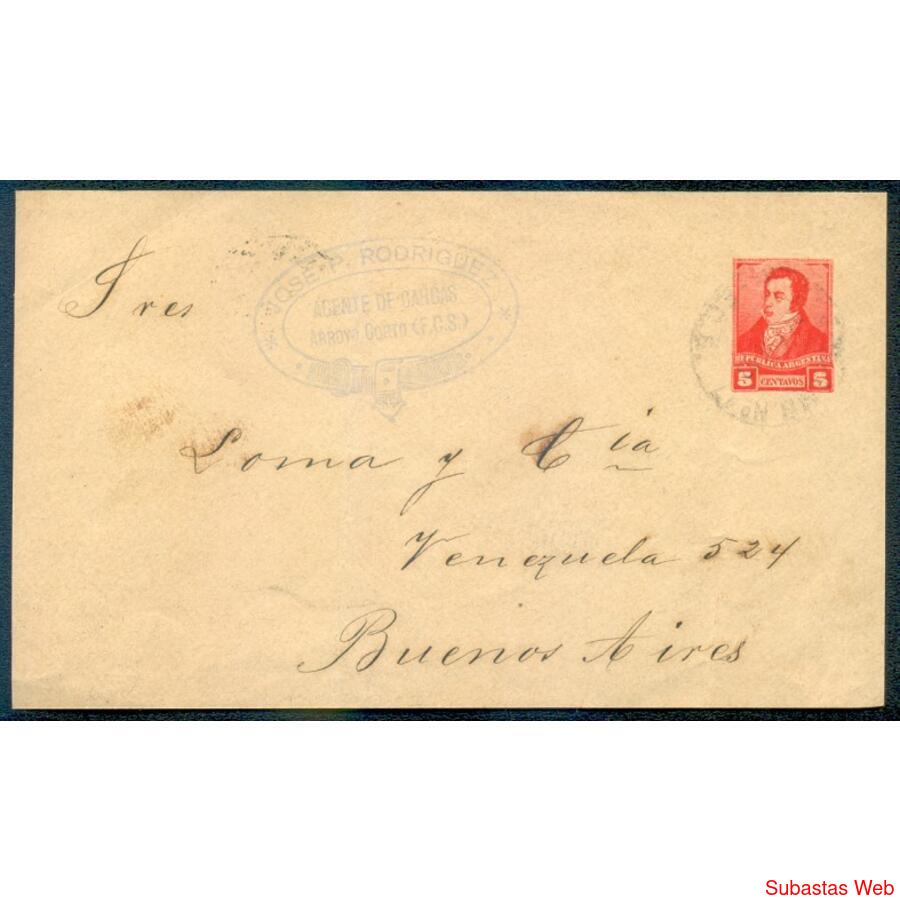 JOSE P. RODRIGUEZ
AGENTE DE CARGAS
ARROYO CORTO (F.C.S.)
Sres
Loma y Cia
Venezuela 524
Buenos Aires
REPUBLICA ARGENTINA
5 CENTAVOS 5
Subastas Web